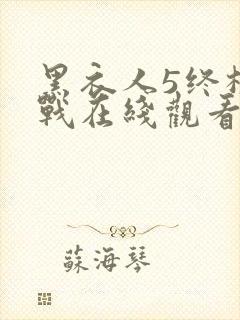 黑衣人5终
戰在綫觀看
蘇海琴